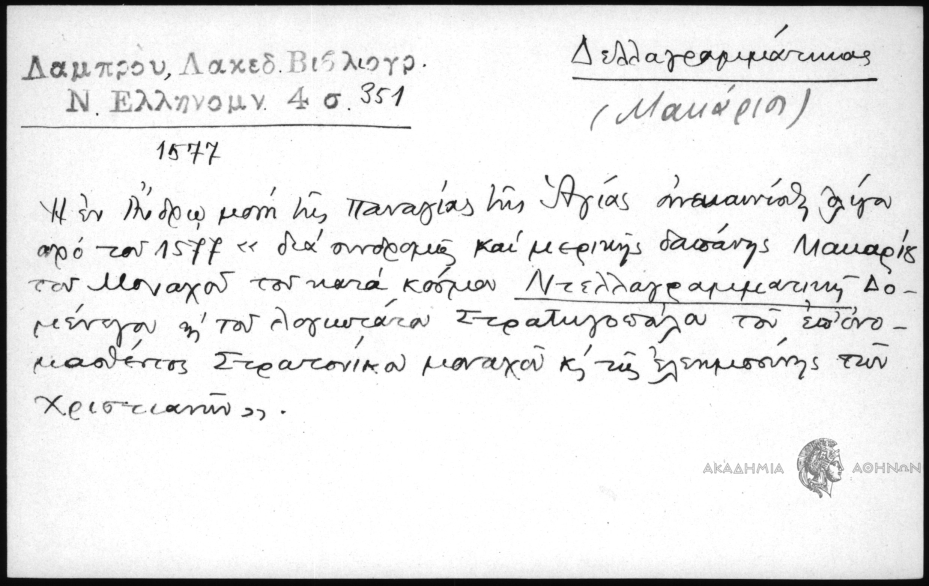 Λαμπρου, Λακεδ. Βιβλιογρ.
Ν. Ελληνομν. 4 σ. 351
Δελλαγραμμάτικας
(Μακάριος)
1577
Ἡ ἐν Ἄνδρῳ μονή τῆς Παναγίας τῆς Ἁγίας ἀνεκαινίσθη λίγο
πρό τοῦ 1577 « διά συνδρομῆς καί μερικῆς δαπάνης Μακαρίου
τοῦ Μοναχοῦ τοῦ κατά κόσμον Ντελλαγραμματική Δο-
μένεγου κ' τοῦ λογιωτάτου Στρατηγοπούλου τοῦ ἐπονο-
μασθέντος Στρατονίκου μοναχοῦ κ' τῆς ἐλεημοσύνης τῶν
Χριστιανῶν».
ΑΚΑΔΗΜΙΑ ΑΘΗΝΩΝ